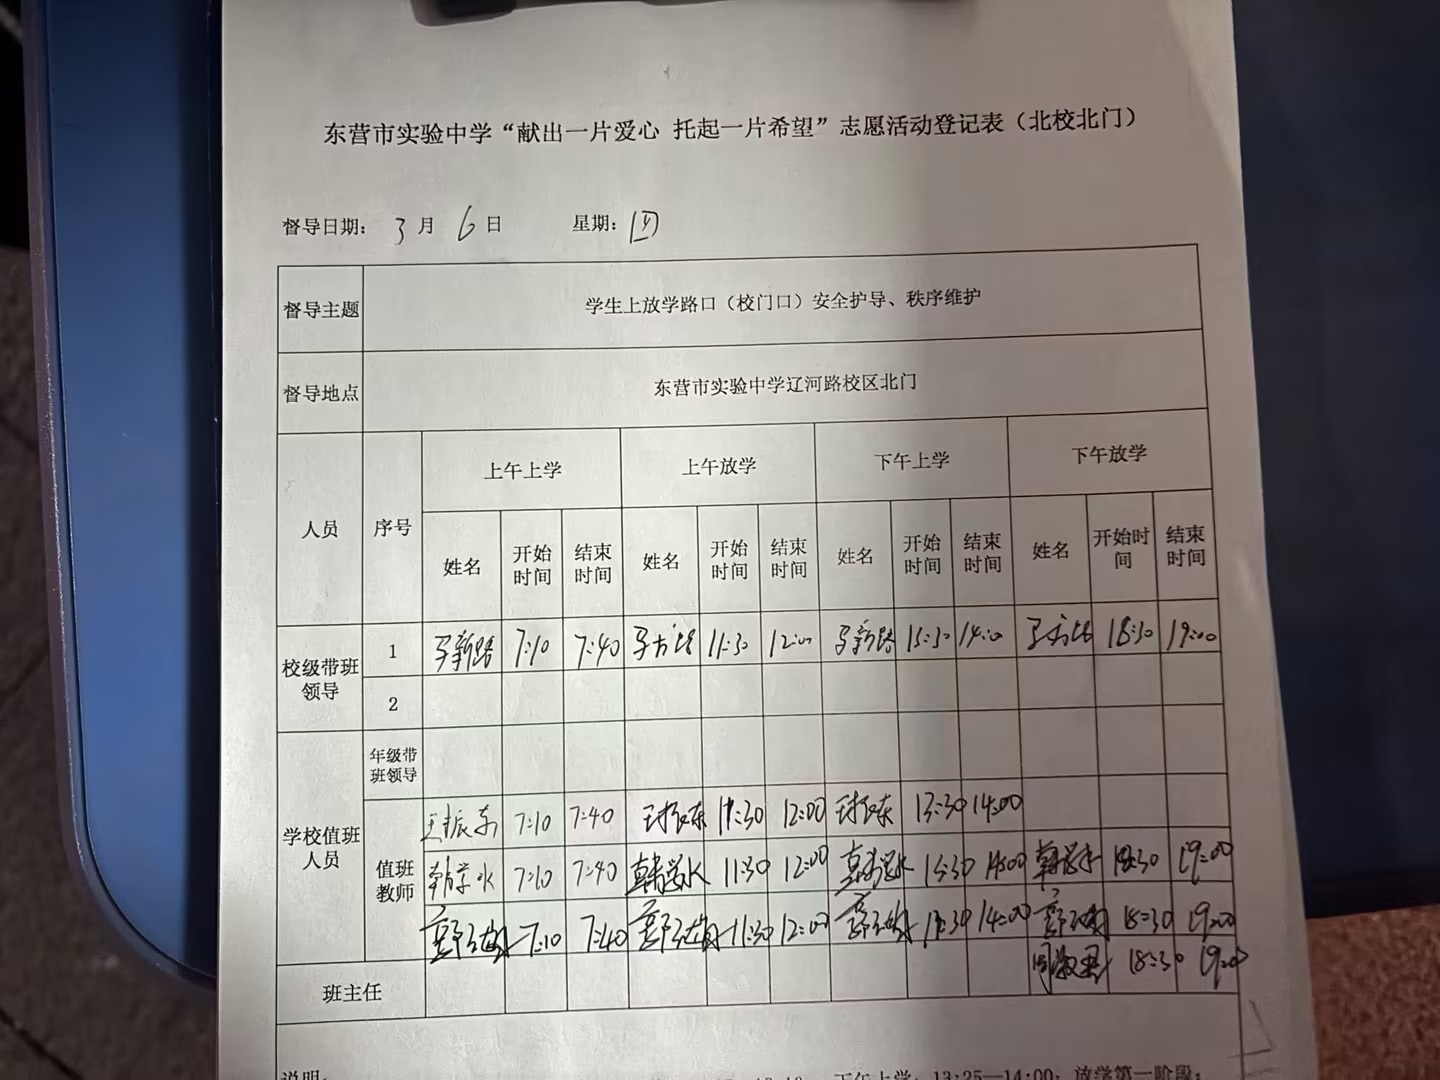 东营市实验中学“献出一片爱心 托起一片希望”志愿活动登记表（北校北门）
督导日期： 3 月 6 日 星期：四
督导主题 学生上放学路口（校门口）安全护导、秩序维护
督导地点 东营市实验中学辽河路校区北门
人员 序号 上午上学 上午放学 下午上学 下午放学
姓名 开始时间 结束时间 姓名 开始时间 结束时间 姓名 开始时间 结束时间 姓名 开始时间 结束时间
校级带班领导 1 7:10 7:40 11:30 12:00 13:30 14:00 18:30 19:00
2
学校值班人员 年级带班领导
值班教师 王振东 7:10 7:40 王振东 11:30 12:00 王振东 13:30 14:00
7:10 7:40 11:30 12:00 13:30 14:00 18:30 19:00
7:10 7:40 11:30 12:00 13:30 14:00 18:30 19:00
班主任 18:30 19:00
说明： 下午上学：13:25—14:00；放学第一阶段：